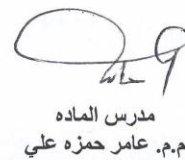 مدرس الماده
م.م. عامر حمزه علي